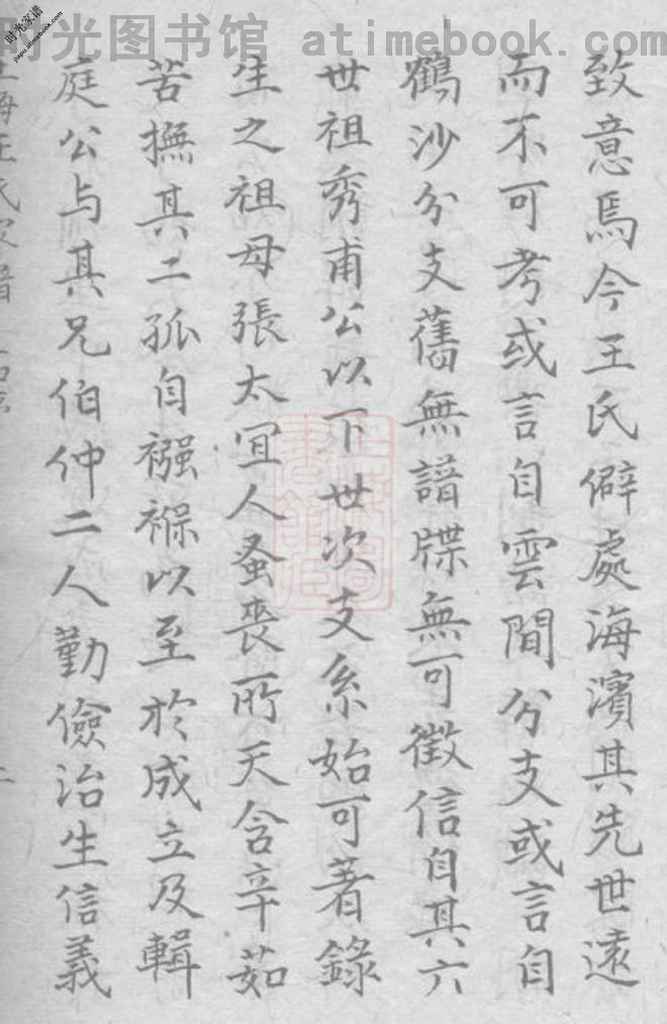 时光图书馆 atimebook.com
时光家谱
致意焉今王氏僻處海濱其先世遠
而不可考或言自雲間分支或言自
鶴沙分支舊無譜牒無可徵信自其六
世祖秀甫公以下世次支系始可著錄
生之祖母張太宜人蚤喪所天含辛茹
苦撫其二孤自襁褓以至於成立及輯
庭公与其兄伯仲二人勤儉治生信義
上海王氏家譜